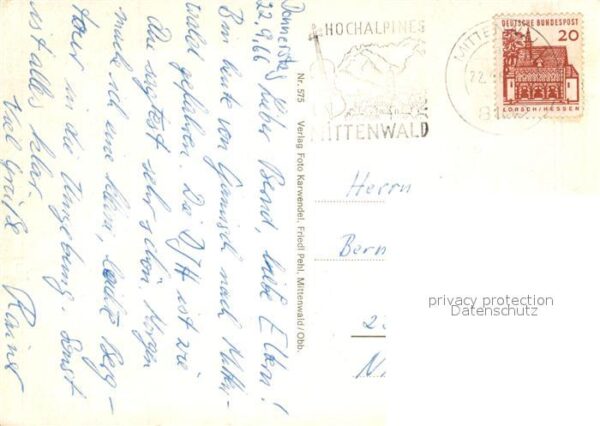 Donnerstag
22.9.66 Lieber Bernd, liebe Eltern!
Bin heute von Garmisch nach Mitten-
wald gefahren. Die DJH ist wie
Du sagtest sehr schön. Morgen
mach ich eine kleine, leichte Berg-
tour in die Umgebung. Sonst
ist alles klar.
Viel Grüße
Rainer
Nr. 575 Verlag Foto Karwendel, Friedl Pehl, Mittenwald/Obb.
HOCHALPINES
MITTENWALD
MITTE
22.
DEUTSCHE BUNDESPOST
20
LORSCH/HESSEN
Herrn
Bern
privacy protection
Datenschutz